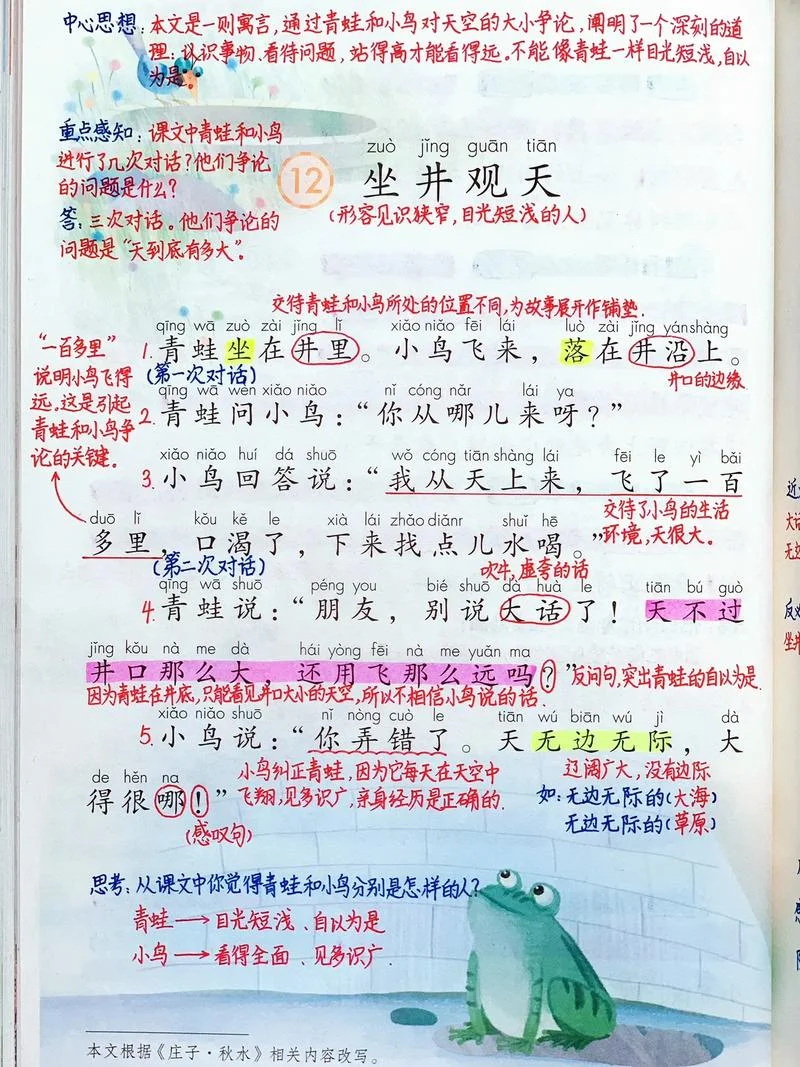 中心思想:本文是一则寓言,通过青蛙和小鸟对天空的大小争论,阐明了一个深刻的道
理:认识事物、看待问题,站得高才能看得远。不能像青蛙一样目光短浅,自以
为是。
重点感知:课文中青蛙和小鸟
进行了几次对话?他们争论
的问题是什么?
答:三次对话。他们争论的
问题是“天到底有多大”。
12
zuò jǐng guān tiān
坐井观天
(形容见识狭窄,目光短浅的人)
交待青蛙和小鸟所处的位置不同,为故事展开作铺垫.
“一百多里”
说明小鸟飞得
远。这是引起
青蛙和小鸟争
论的关键。
qīng wā zuò zài jǐng lǐ xiǎo niǎo fēi lái luò zài jǐng yán shàng
1.青蛙坐在井里。小鸟飞来,落在井沿上。
(第一次对话)
井口的边缘
qīng wā wèn xiǎo niǎo nǐ cóng nǎr lái ya
2.青蛙问小鸟:“你从哪儿来呀?”
xiǎo niǎo huí dá shuō wǒ cóng tiān shàng lái fēi le yì bǎi
3.小鸟回答说:“我从天上来,飞了一百
交待了小鸟的生活
环境,天很大。
duō lǐ kǒu kě le xià lái zhǎo diǎnr shuǐ hē
多里,口渴了,下来找点儿水喝。”
(第二次对话)
吹牛,虚夸的话
qīng wā shuō péng you bié shuō dà huà le tiān bú guò
4.青蛙说:“朋友,别说大话了!天不过
jǐng kǒu nà me dà hái yòng fēi nà me yuǎn ma
井口那么大,还用飞那么远吗?”
反问句,突出青蛙的自以为是.
因为青蛙在井底,只能看见井口大小的天空,所以不相信小鸟说的话.
xiǎo niǎo shuō nǐ nòng cuò le tiān wú biān wú jì dà
5.小鸟说:“你弄错了。天无边无际,大
de hěn na
得很哪!”
(感叹句)
小鸟纠正青蛙,因为它每天在天空中
飞翔,见多识广,亲身经历是正确的.
辽阔广大,没有边际
如:无边无际的(大海)
无边无际的(草原)
思考:从课文中你觉得青蛙和小鸟分别是怎样的人?
青蛙→目光短浅、自以为是
小鸟→看得全面、见多识广.
本文根据《庄子·秋水》相关内容改写。